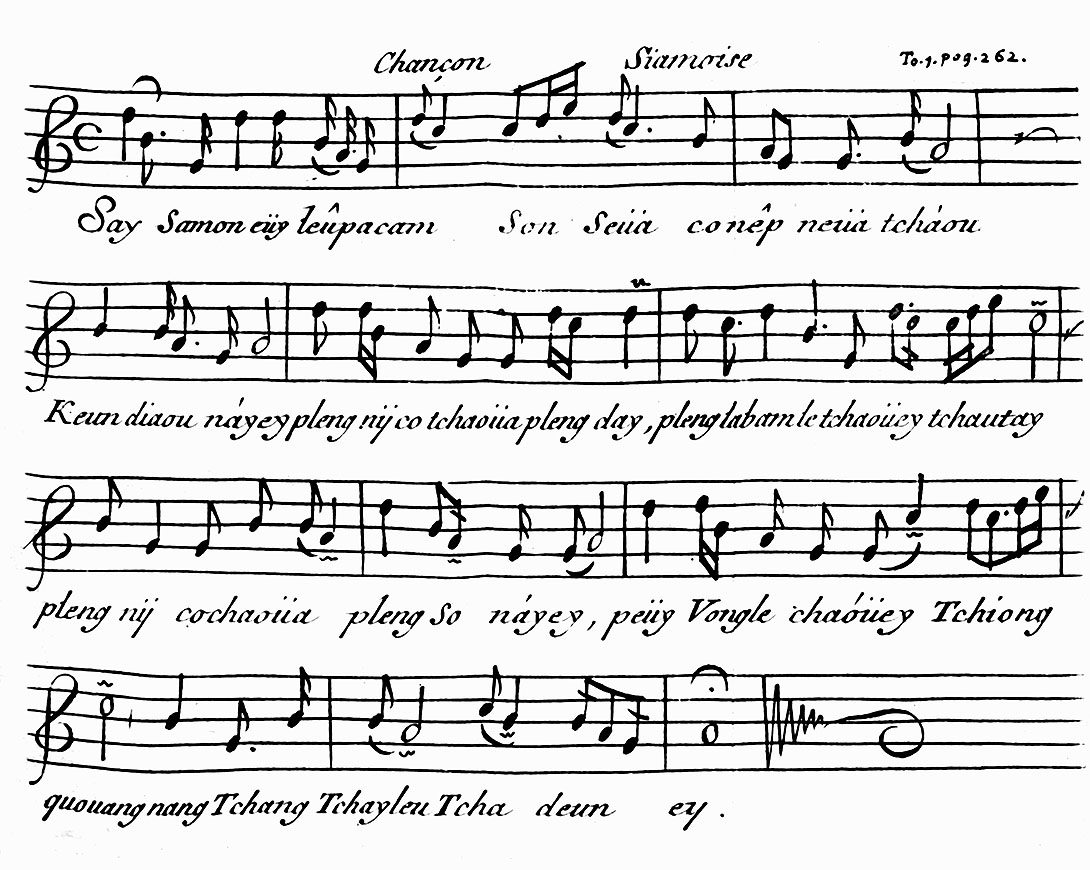 Chançon Siamoise To.1.pag.262.
Say Samon eüy leûpacam Son Seüa conêp neüa tcháou
Keun diaou náyey pleng nij co tchaoüa pleng day, pleng labam le tchaoüey tchautay
pleng nij cochaoüa pleng So náyey, peüy Vongle chaóüey Tchiong
quouang nang Tchang Tchayleu Tcha deun ey.